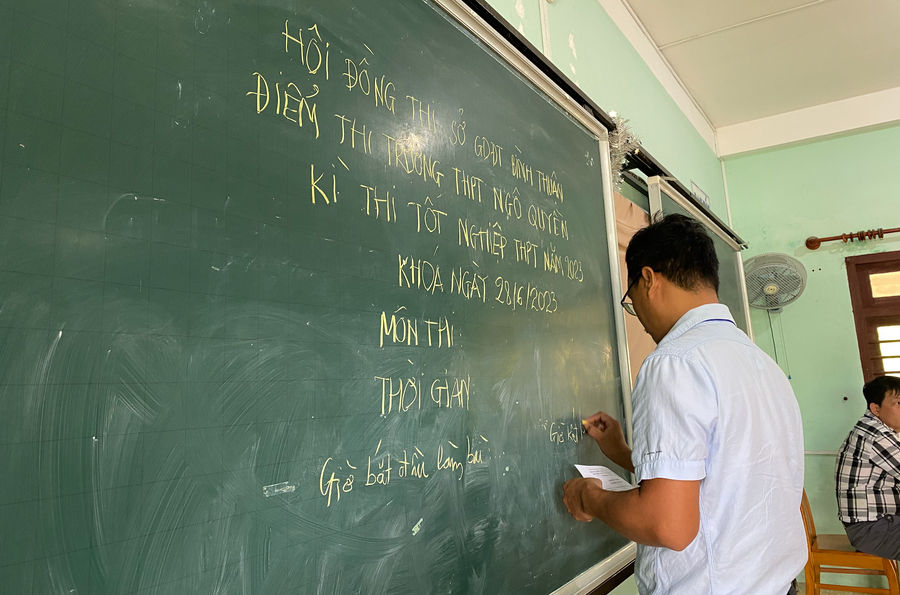 HỘI ĐỒNG THI SỞ GDĐT BÌNH THUẬN
ĐIỂM THI TRƯỜNG THPT NGÔ QUYỀN
KÌ THI TỐT NGHIỆP THPT NĂM 2023
KHÓA NGÀY 28/6/2023
MÔN THI:
THỜI GIAN:
Giờ bắt đầu làm bài:
Giờ kết